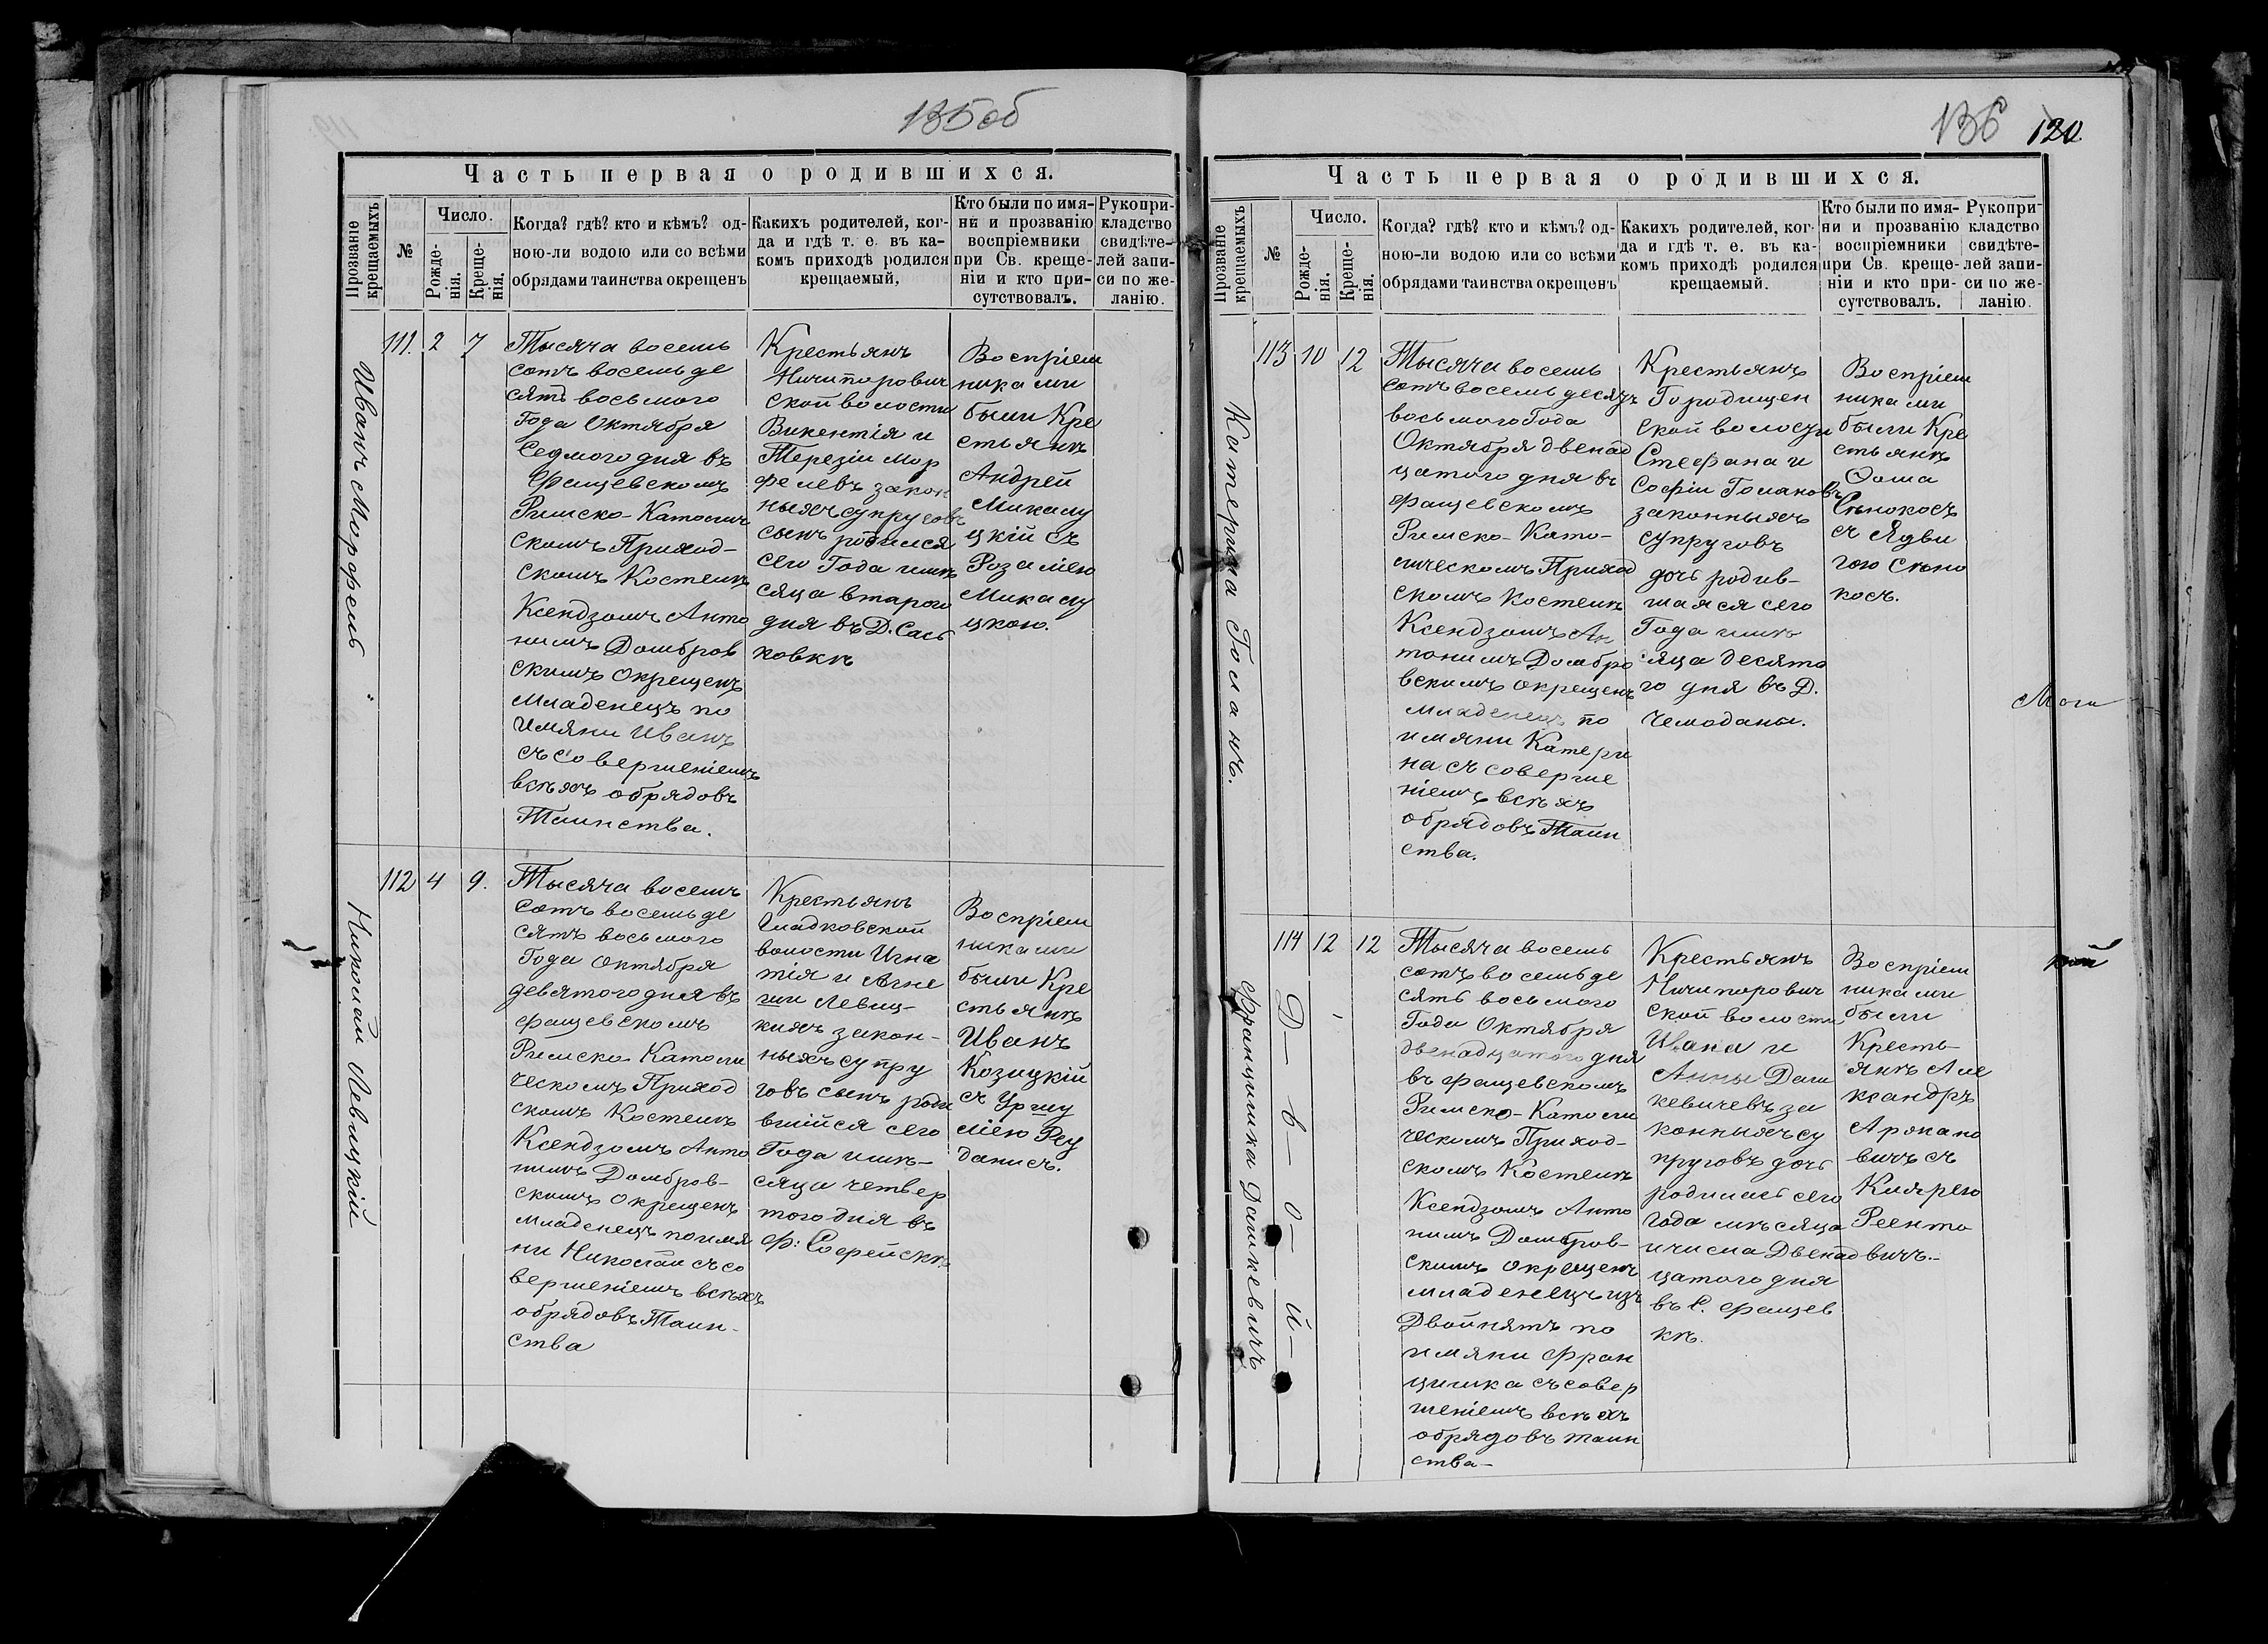 135об
Часть первая о родившихся.
Прозваніе крещаемыхъ
№
Число.
Рожде-
нія.
Креще-
нія.
Когда? гдѣ? кто и кѣмъ? од-
ною-ли водою или со всѣми
обрядами таинства окрещенъ
Какихъ родителей, ког-
да и гдѣ т. е. въ ка-
комъ приходѣ родился
крещаемый,
Кто были по имя-
нѣ и прозванію
воспріемники
при Св. креще-
ніи и кто при-
сутствовалъ.
Рукопри-
кладство
свидѣте-
лей запи-
си по же-
ланію.
Иванъ Мирфель
111. 2 7
Тысяча восемь
сотъ восемьде
сятъ восьмого
Года Октября
Седмого дня въ
Фащевскомъ
Римско-Католич
скомъ Приход-
скомъ Костелѣ
Ксендзомъ Анто
нимъ Домбров
скимъ окрещенъ
младенецъ по
имяни Иванъ
съ совершеніемъ
всѣхъ обрядовъ
Таинства.
Крестьянъ
Ничипорович
ской волости
Викентія и
Терезіи Мор
фелевъ закон
ныхъ супруговъ
сынъ родился
сего Года и мѣ
сяца второго
дня въ Д. Сась
ковкѣ
Воспріем
никами
были Кре
стьянъ
Андрей
Микалу
цкій съ
Розаліею
Микалу
цкою.
Николай Левицкій
112 4 9.
Тысяча восемъ
сотъ восемьде
сятъ восьмого
Года Октября
девятого дня въ
Фащевскомъ
Римско Католи
ческомъ Приход
скомъ Костелѣ
Ксендзомъ Анто
нимъ Домбров-
скимъ окрещенъ
младенецъ по имя
ни Николай съ со
вершеніемъ всѣхъ
обрядовъ Таин-
ства
Крестьянъ
Гладковской
волости Игна
тія и Агне
ши Левиц-
кихъ закон-
ныхъ супру
говъ сынъ роди
вшійся сего
Года и мѣ-
сяца четвер
того дня въ
Ф: Софейскѣ
Воспріем
никами
были Кре
стьянъ
Иванъ
Козицкій
съ Уршу
лею Реу
данисъ.
136 120
Часть первая о родившихся.
Прозваніе крещаемыхъ
№
Число.
Рожде-
нія.
Креще-
нія.
Когда? гдѣ? кто и кѣмъ? од-
ною-ли водою или со всѣми
обрядами таинства окрещенъ
Какихъ родителей, ког-
да и гдѣ т. е. въ ка-
комъ приходѣ родился
крещаемый.
Кто были по имя-
ни и прозванію
воспріемники
при Св. креще-
ніи и кто при-
сутствовалъ.
Рукопри-
кладство
свидѣте-
лей запи-
си по же-
ланію.
Катерина Голанъ.
113 10 12
Тысяча восемь
сотъ восемьдесятъ
восьмого Года
Октября двенад
цатого дня въ
Фащевскомъ
Римско-Като-
лическомъ Приход
скомъ Костелѣ
Ксендзомъ Ан
тонимъ Домбро
вскимъ окрещенъ
младенецъ по
имяни Катери
на съ соверше
ніемъ всѣхъ
обрядовъ Таин
ства.
Крестьянъ
Городищен
ской волости
Стефана и
Софіи Голановъ
законныхъ
супруговъ
дочь родив-
шаяся сего
Года и мѣ
сяца десято
го дня въ Д.
Чемоданы.
Воспріем
никами
были Кре
стьянъ
Ѳома
Сѣнокосъ
съ Ядви
гою Сѣно
косъ.
Моги
кой
Францишка Дашкевичъ
Д-в-о-й-
114 12 12
Тысяча восемь
сотъ восемьде
сятъ восьмого
Года Октября
двенадцатого дня
въ Фащевскомъ
Римско-Католи
ческомъ Приход-
скомъ Костелѣ
Ксендзомъ Анто
нимъ Домбров-
скимъ окрещенъ
младенецъ изъ
Двойнятъ по
имяни Фран
цишка съ совер
шеніемъ всѣхъ
обрядовъ таин
ства-
Крестьянъ
Ничипорович
ской волости
Ивана и
Анны Даш
кевичевъ за
конныхъ су
пруговъ дочь
родилась сего
года мѣсяца
и числа Двенад
цатого дня
въ С. Фащев
кѣ.
Воспріем
никами
были
Кресть-
янъ Але
ксандръ
Арпано
вичъ съ
Клярею
Реенто
вичъ.-